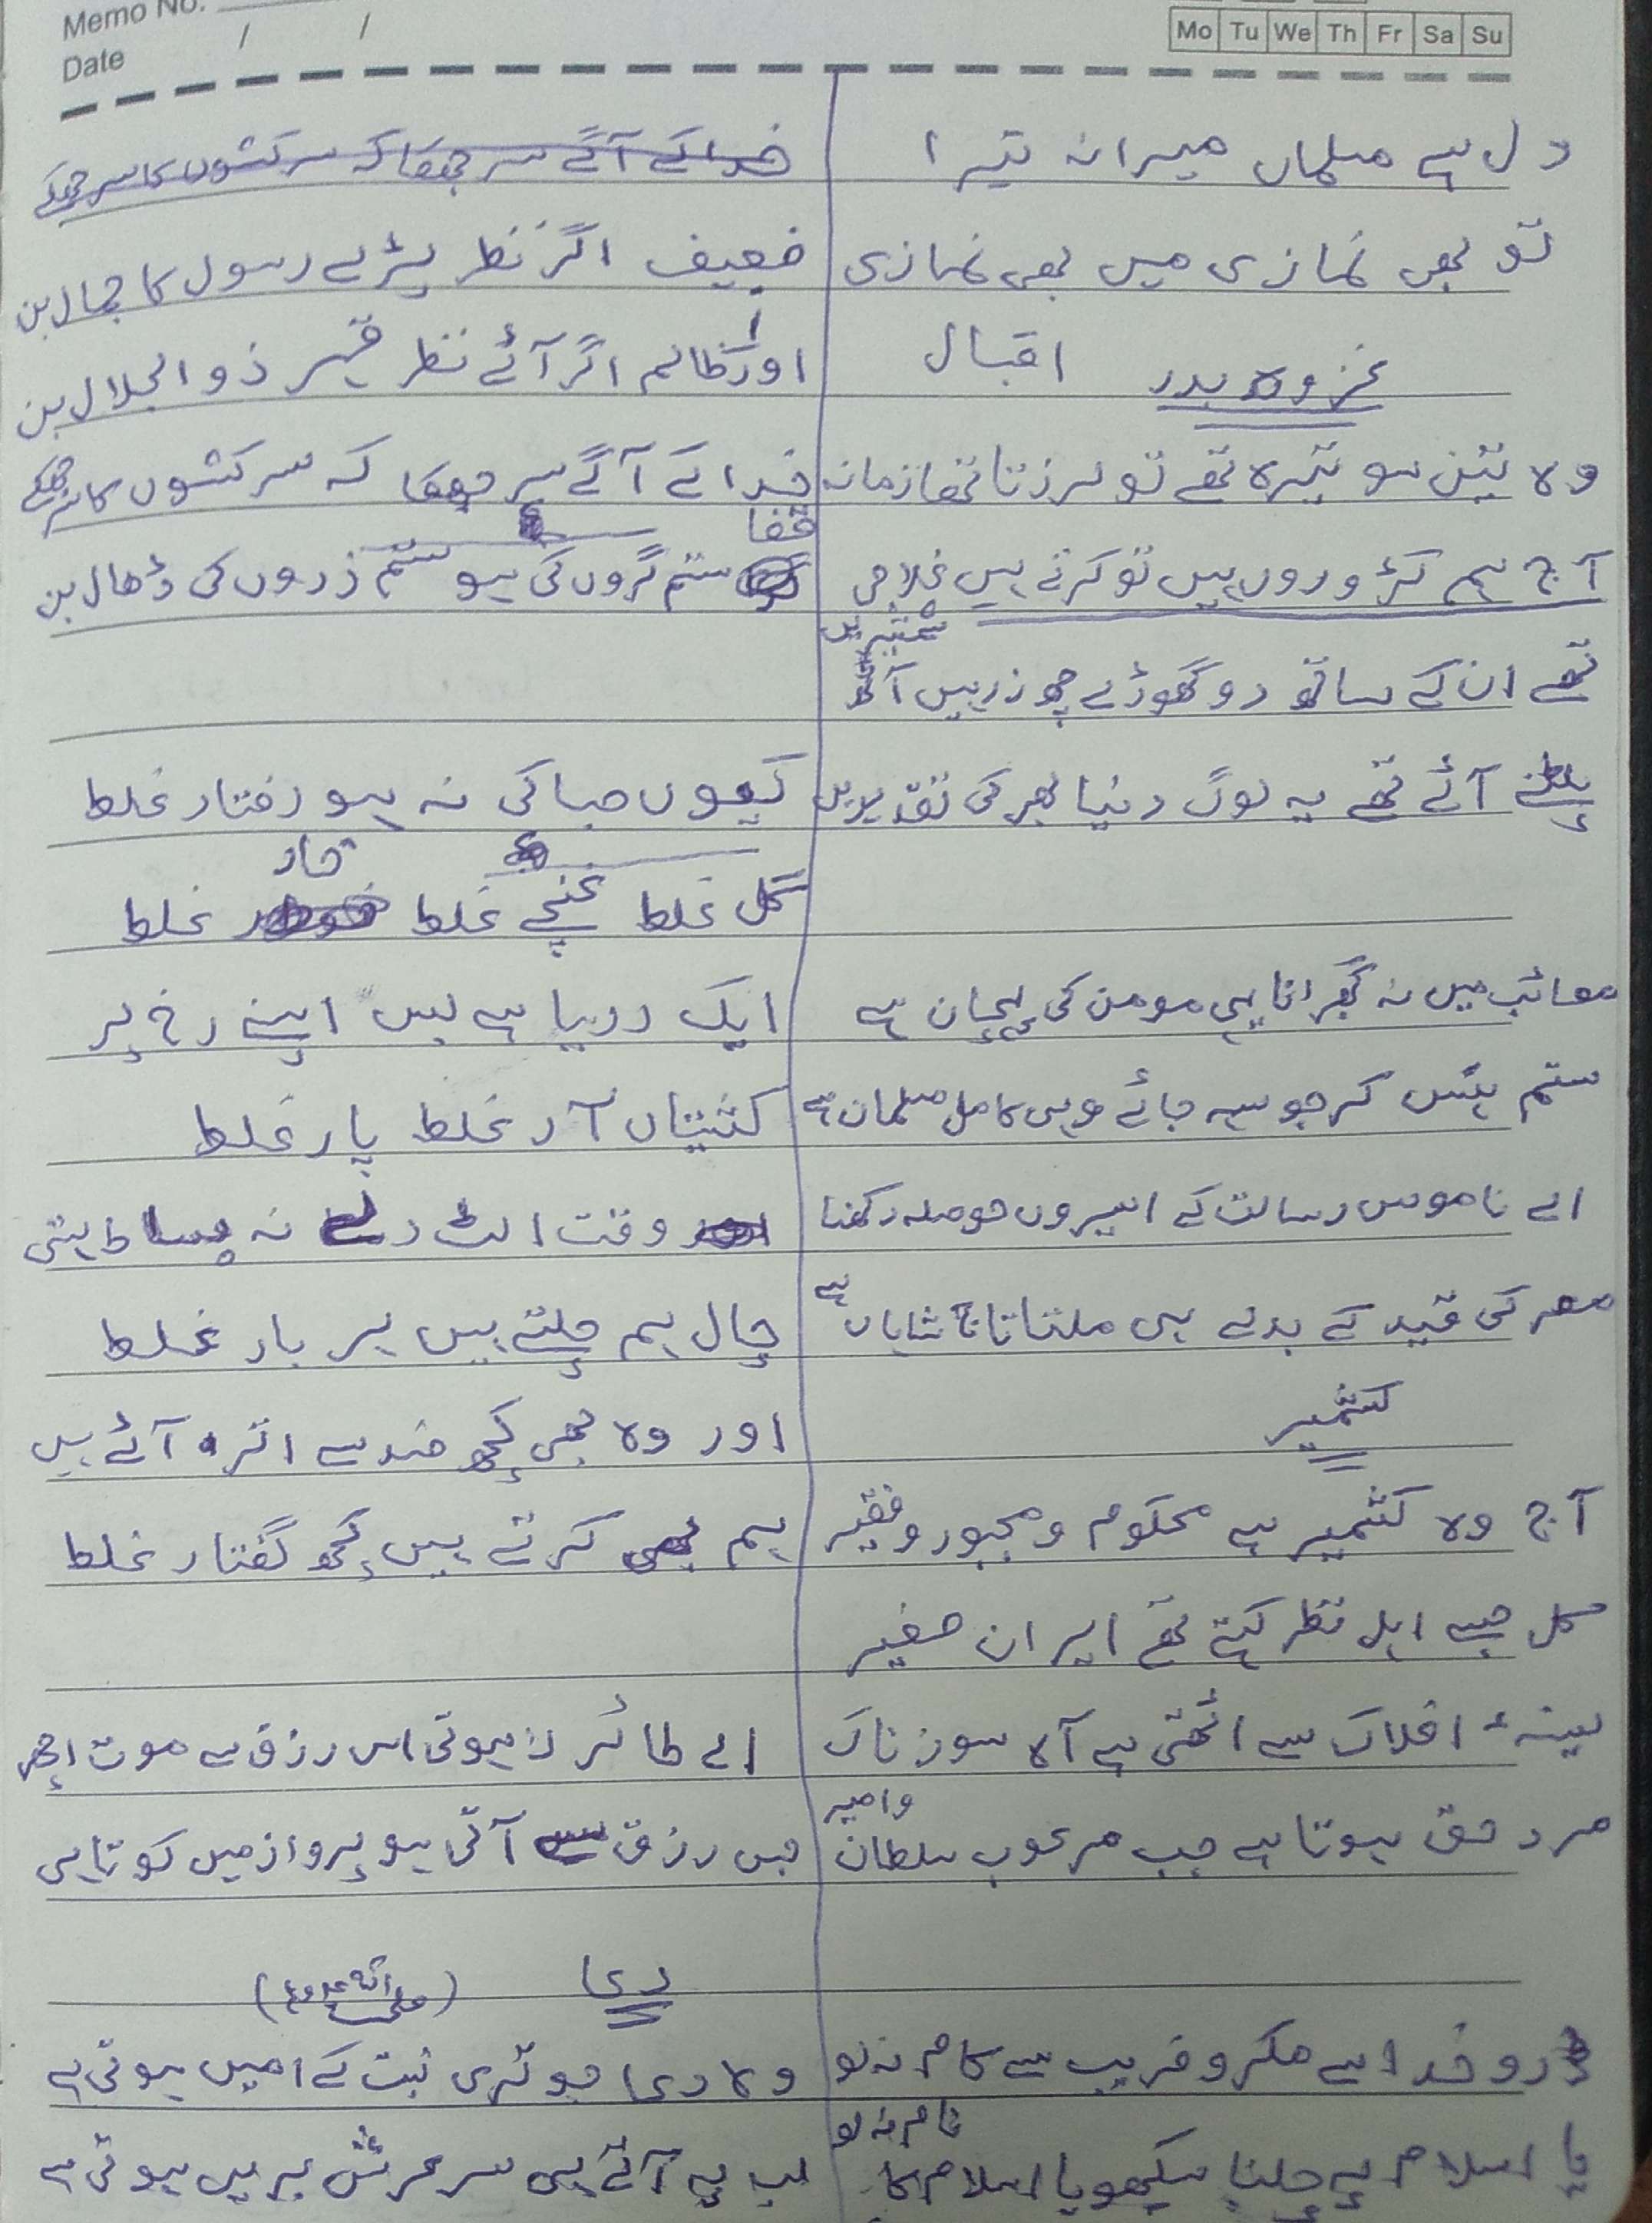 Memo No.
Date / /
Mo Tu We Th Fr Sa Su
دل ہے مسلماں میرا نہ تیرا
تو بھی نمازی میں بھی نمازی
غزوہ بدر اقبال
وہ تین سو تیرہ تھے تو لرزتا تھا زمانہ
آج ہم کڑوروں ہیں تو کرتے ہیں غلامی
تھے ان کے ساتھ دو گھوڑے چھ زرہیں آٹھ شمشیریں
پلٹنے آئے تھے یہ لوگ دنیا بھر کی تقدیریں
مصائب میں نہ گھبرانا ہی مومن کی پہچان ہے
ستم ہنس کر جو سہہ جائے وہی کامل مسلمان ہے
اے ناموس رسالت کے اسیروں حوصلہ رکھنا
مصر کی قید کے بدلے ہی ملتا تاج شاہاں ہے
کشمیر
آج وہ کشمیر ہے محکوم و مجبور و فقیر
کل جسے اہل نظر کہتے تھے ایران صغیر
سینہء افلاک سے اٹھتی ہے آہ سوز ناک
مرد حق ہوتا ہے جب مرعوب سلطان و امیر
ڈرو خدا سے مکر و فریب سے کام نہ لو
یا اسلام پے چلنا سیکھو یا اسلام کا نام نہ لو
خدا کے آگے سر جھکا کہ سرکشوں کا سر جھکے
ضعیف اگر نظر پڑے رسول کا جمال بن
اور ظالم اگر آئے نظر قہر ذوالجلال بن
خدا کے آگے سر جھکا کہ سرکشوں کا سر جھکے
قضا ستم گروں کی ہو ستم زدوں کی ڈھال بن
کیوں صبا کی نہ ہو رفتار غلط
گل غلط غنچے غلط خار غلط
ایک دریا ہے بس اپنے رخ پر
کشتیاں آر غلط پار غلط
وقت الٹ دے نہ بساط ہستی
چال ہم چلتے ہیں ہر بار غلط
اور وہ بھی کچھ ضد سے اتر آئے ہیں
ہم بھی کرتے ہیں کچھ گفتار غلط
اے طائر لاہوتی اس رزق سے موت اچھی
جس رزق سے آتی ہو پرواز میں کوتاہی
دعا
وہ دعا جو تری نبت کے امیں ہوتی ہے
لب پہ آتے ہی سر عرش بریں ہوتی ہے